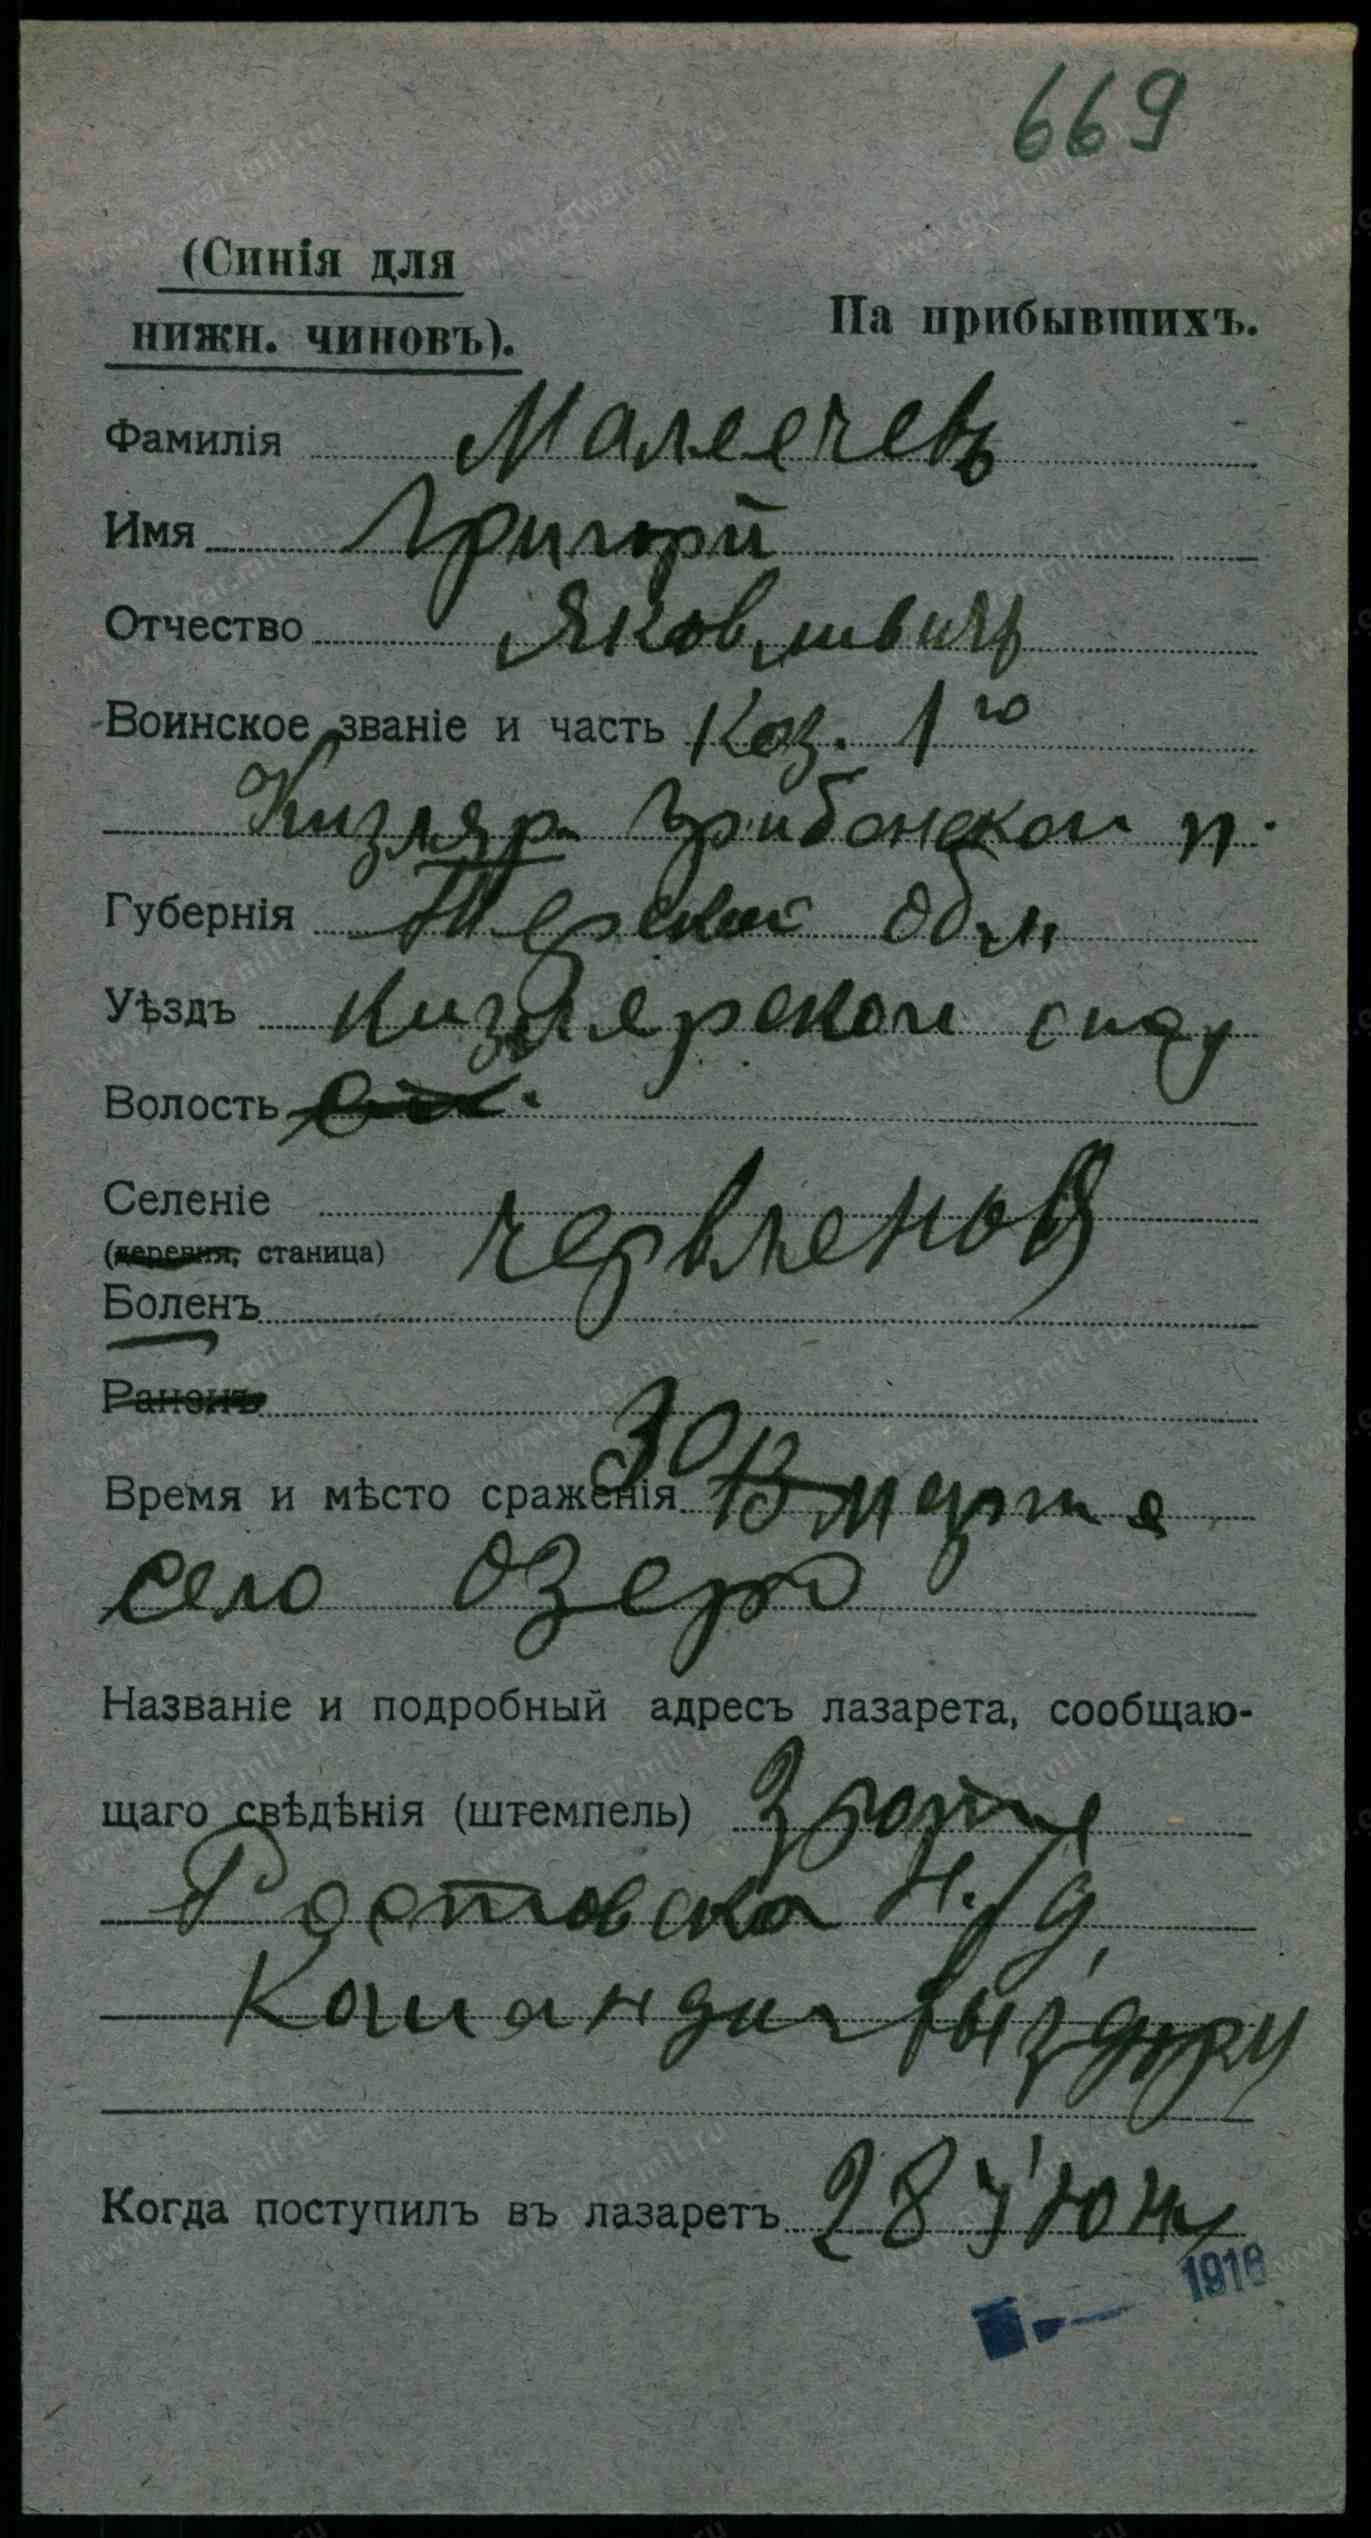 669
(Синія для
нижн. чиновъ).
На прибывшихъ.
Фамилія Малеечевъ
Имя Григорій
Отчество Яковлевичъ
Воинское званіе и часть Каз. 1го
Кизляр. Гребенской п.
Губернія Терской обл.
Уѣздъ Кизлярской
Волость
Селеніе Червленов
(деревня, станица)
Боленъ
Раненъ
Время и мѣсто сраженія 30 марта
село Озеро
Названіе и подробный адресъ лазарета, сообщаю-
щаго свѣдѣнія (штемпель) 3 рота
Ростовска н/д
Команди выздору
Когда поступилъ въ лазаретъ 28 Июня
1916